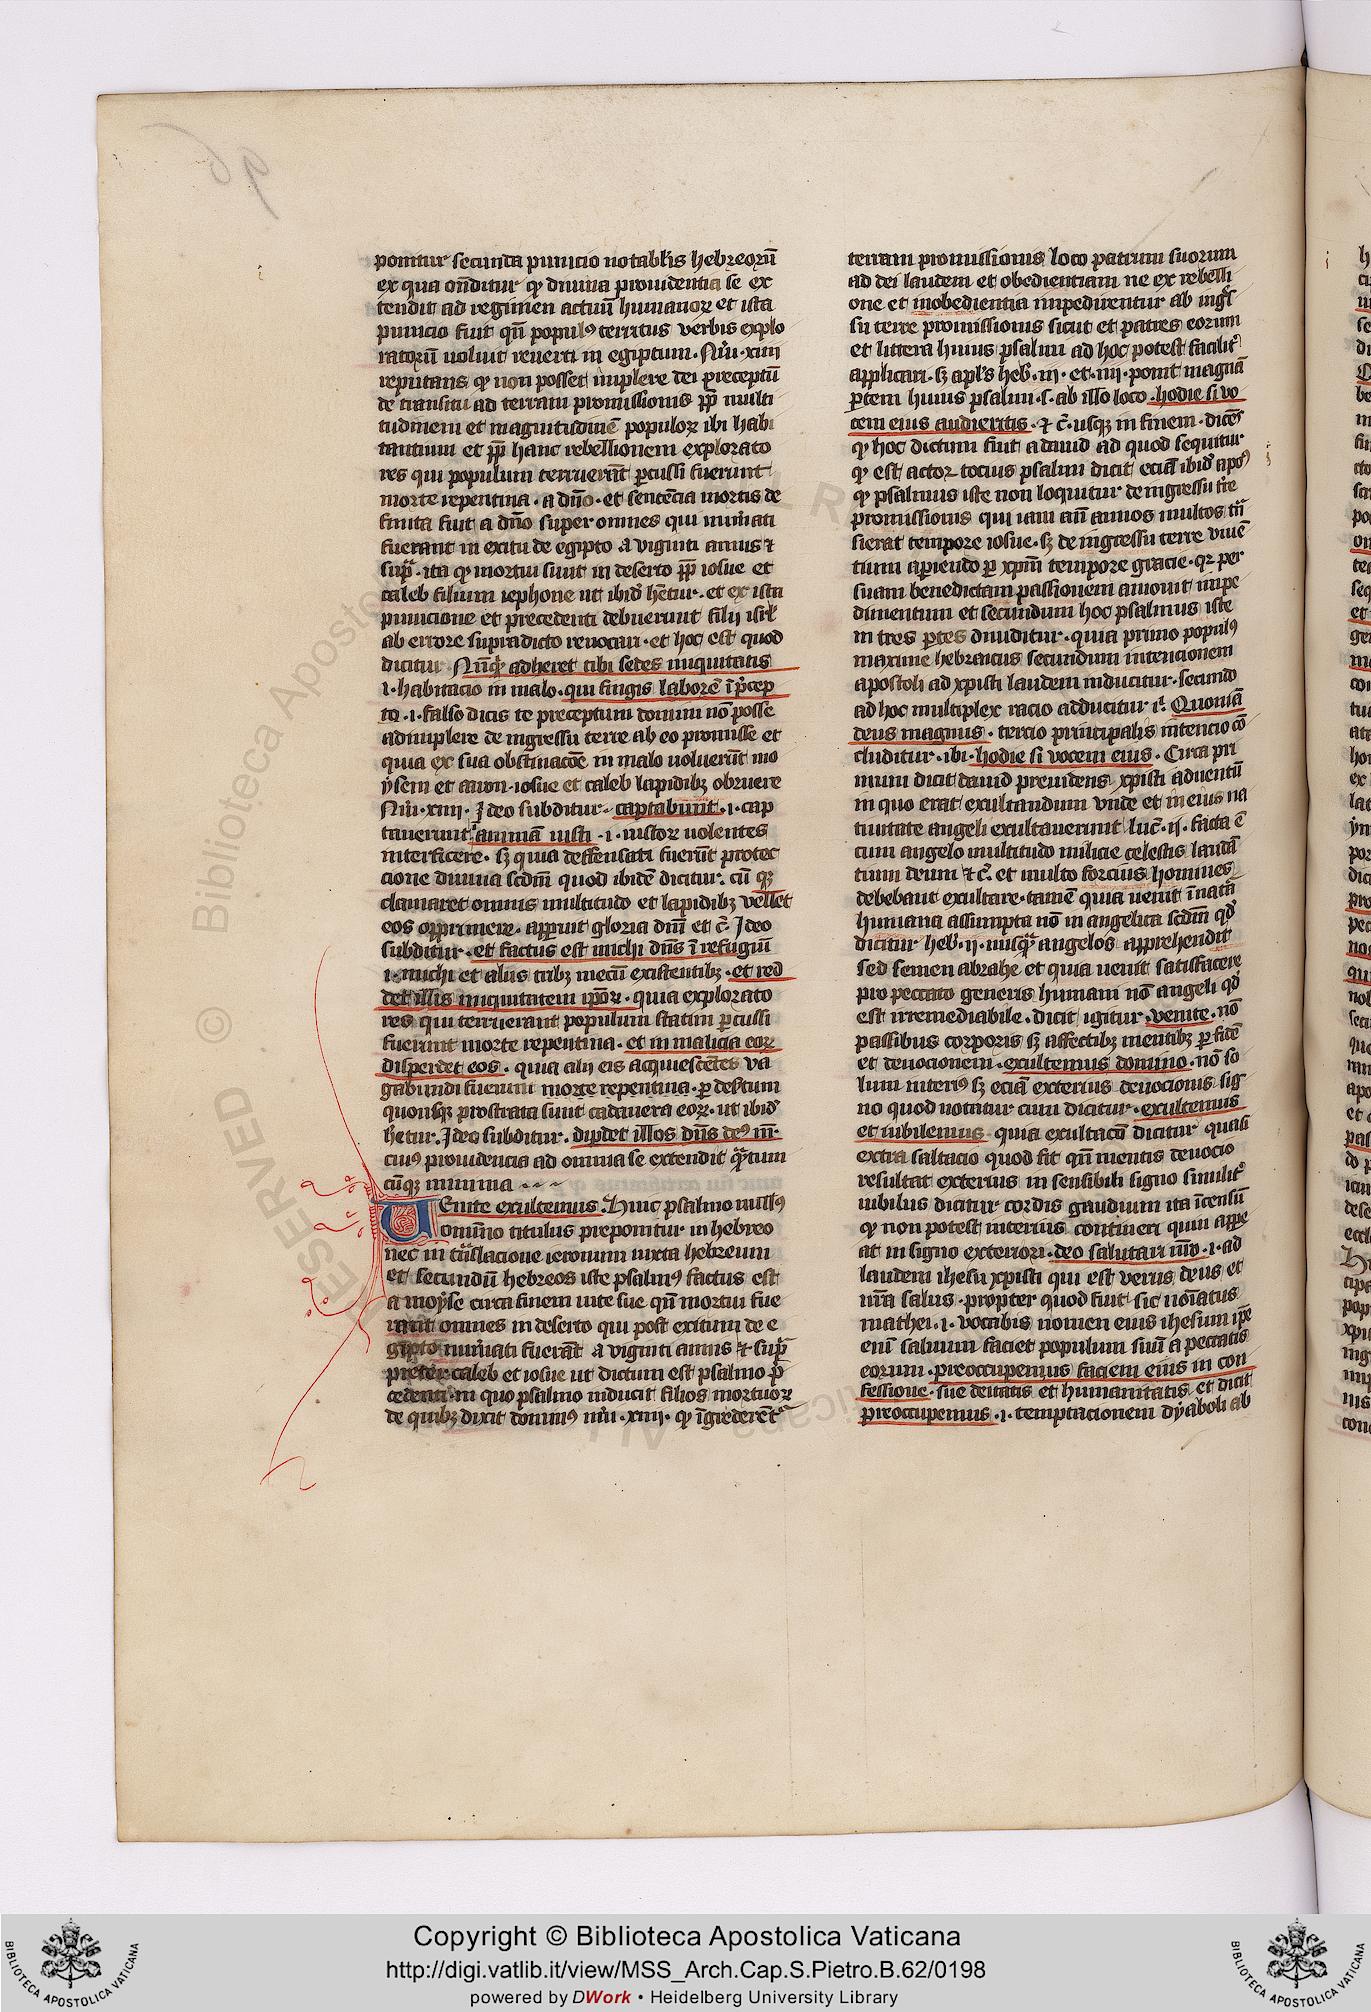 ponitur secunda punicio notabĺis hebreorū
ex qua on̄ditur ꝙ diuina prouidentia se ex
tendit ad regimen actuū humanoꝝ et ista
punicio fuit qn̄ popul⁹ territus verbis explo
ratorū uoluit reuerti in egiptum · Nūi · xiiii
reputans ꝙ non posset implere dei preceptū
de transitu ad terram promissionis ꝓp̄ multi
tudinem et magnitudinē populoꝝ ibi habi
tantium et ꝓp̄ hanc rebellionem explorato
res qui populum terruerāt ꝑcussi fuerunt
morte repentina · a dn̄o · et sentēcia mortis de
finita fuit a dn̄o super omnes qui nūı̄ati
fuerant in exitu de egipto a viginti annis ⁊
supͣ · ita ꝙ mortui sunt in deserto ꝓp̄ iosue et
caleb filium iephone ut ibid̄ hētur · et ex ista
punicione et precedenti debuerunt filij isrĺ
ab errore supradicto reuocari · et hoc est quod
dicitur · Nūqͥd adheret tibi sedes iniquitatis
i · habitacio in malo · qui fingis laborē ī p̄cep
to · i · falso dicis te preceptum domini nō posse
adimplere de ingressu terre ab eo promisse et
quia ex sua obstinacōe in malo uoluerūt mo
ẏsem et aaron · iosue et caleb lapidibꝫ obruere
Nūi · xiiii · Ideo subditur · captabunt · i · cap
tauerunt animā iusti · i · iustoꝝ uolentes
interficere · sꝫ quia deffensati fuerūt protec
cione diuina scdm̄ quod ibidē dicitur · cū qꝫ
clamaret omnis multitudo et lapidibꝫ vellet
eos opprimere · apparuit gloria dn̄i et c̄ · Ideo
subditur · et factus est michi dn̄s ī refugiū
i · michi et alijs tribꝫ mecū existentibꝫ · et red
det illis iniquitatem ipōꝝ · quia explorato
res qui terruerant populum statim ꝑcussi
fuerunt morte repentina · et in malicia eoꝝ
disperdet eos · quia alij eis acquiescētes va
gabundi fuerunt morte repentina · ꝑ desertum
quousqꝫ prostrata sunt cadauera eoꝝ · ut ibid̄
hētur · Ideo subditur · disꝑdet illos dn̄s de⁹ nr̄ ·
cui⁹ prouidencia ad omnia se extendit qͣntum
cūqꝫ minima
Uenite exultemus · Huic psalmo null⁹
omnino titulus preponitur in hebreo
nec in trͣslacione ieronimi iuxta hebreum
et secundū hebreos iste psalm⁹ factus est
a moẏse circa finem uite sue qn̄ mortui fue
rant omnes in deserto qui post exitum de e
gipto nūı̄ati fuerāt a viginti annis ⁊ supͣ
preter caleb et iosue ut dictum est psalmo p̄
cedenti · in quo psalmo inducit filios mortuoꝝ
de quibꝫ dixit domin⁹ nūi · xiiii · ꝙ īgrederēt᷑
terram promissionis loco patrum suorum
ad dei laudem et obedientiam ne ex rebelli
one et inobedientia impedirentur ab ingͤs
su terre promissionis sicut et patres eorum
et littera huius psalmi ad hoc potest facilit᷑
applicari · sꝫ apĺs heb̄ · iii · et · iiii · ponit magnā
ꝑtem huius psalmi · s · ab illo loco · hodie si vo
cem eius audieritis · ⁊ c̄ · usqꝫ in finem · dicēs
ꝙ hoc dictum fuit a dauid ad quod sequitur
ꝙ est actor tocius psalmi dicit eciā ibid̄ apo⁹
ꝙ psalmus iste non loquitur de ingressu tr̄re
promissionis qui iam an̄ annos multos trͣn
sierat tempore iosue · sꝫ de ingressu terre viuē
tium aperiendo ꝑ xpm̄ tempore gracie · qꝛ per
suam benedictam passionem amouit impe
dimentum et secundum hoc psalmus iste
in tres ꝑtes diuiditur · quia primo popul⁹
maxime hebraicus secundum intencionem
apostoli ad xpisti laudem inducitur · secundo
ad hoc multiplex racio adducitur i᷑ · Quoniā
deus magnus · tercio principalis intencio cō
cluditur · ibi · hodie si vocem eius · Circa pri
mum dicit dauid preuidens xpisti aduentū
in quo erat exultandum vnde et in eius na
tiuitate angeli exultauerunt luc̄ · ii · facta ē
cum angelo multitudo milicie celestis laudā
tium deum ⁊ c̄ · et multo forcius homines
debebant exultare · tamē quia uenit ī natᷓ
humana assumpta nō in angelica scdm̄ qd̄
dicitur heb̄ · ii · nusqͣ angelos apprehendit
sed semen abrahe et quia uenit satisfacere
pro peccato generis humani nō angeli qd̄
est irremediabile · dicit igitur · venite · nō
passibus corporis sꝫ affectibꝫ mentibꝫ ꝑ fidē
et deuocionem · exultemus domino · nō so
lum interi⁹ sꝫ eciā exterius deuocionis sig
no quod notatur cum dicitur · exultemus
et iubilemus · quia exultacō dicitur quasi
extra saltacio quod fit qn̄ mentis deuocio
resultat exterius in sensibili signo similit᷑
iubilus dicitur cordis gaudium ita īcensū
ꝙ non potest interius contineri quin appe
at in signo exteriori · deo salutari nr̄o · i · ad
laudem ihesu xpisti qui est verus deus et
nr̄a salus · propter quod fuit sic noīatus
mathei · i · vocabis nomen eius ihesum ip̄e
enī saluum faciet populum suū a peccatis
eorum · preoccupemus faciem eius in con
fessione · sue deitatis et humanitatis et dicit
preoccupemus · i · temptacionem dẏaboli ab
Copyright © Biblioteca Apostolica Vaticana
http://digi.vatlib.it/view/MSS_Arch.Cap.S.Pietro.B.62/0198
powered by DWork • Heidelberg University Library